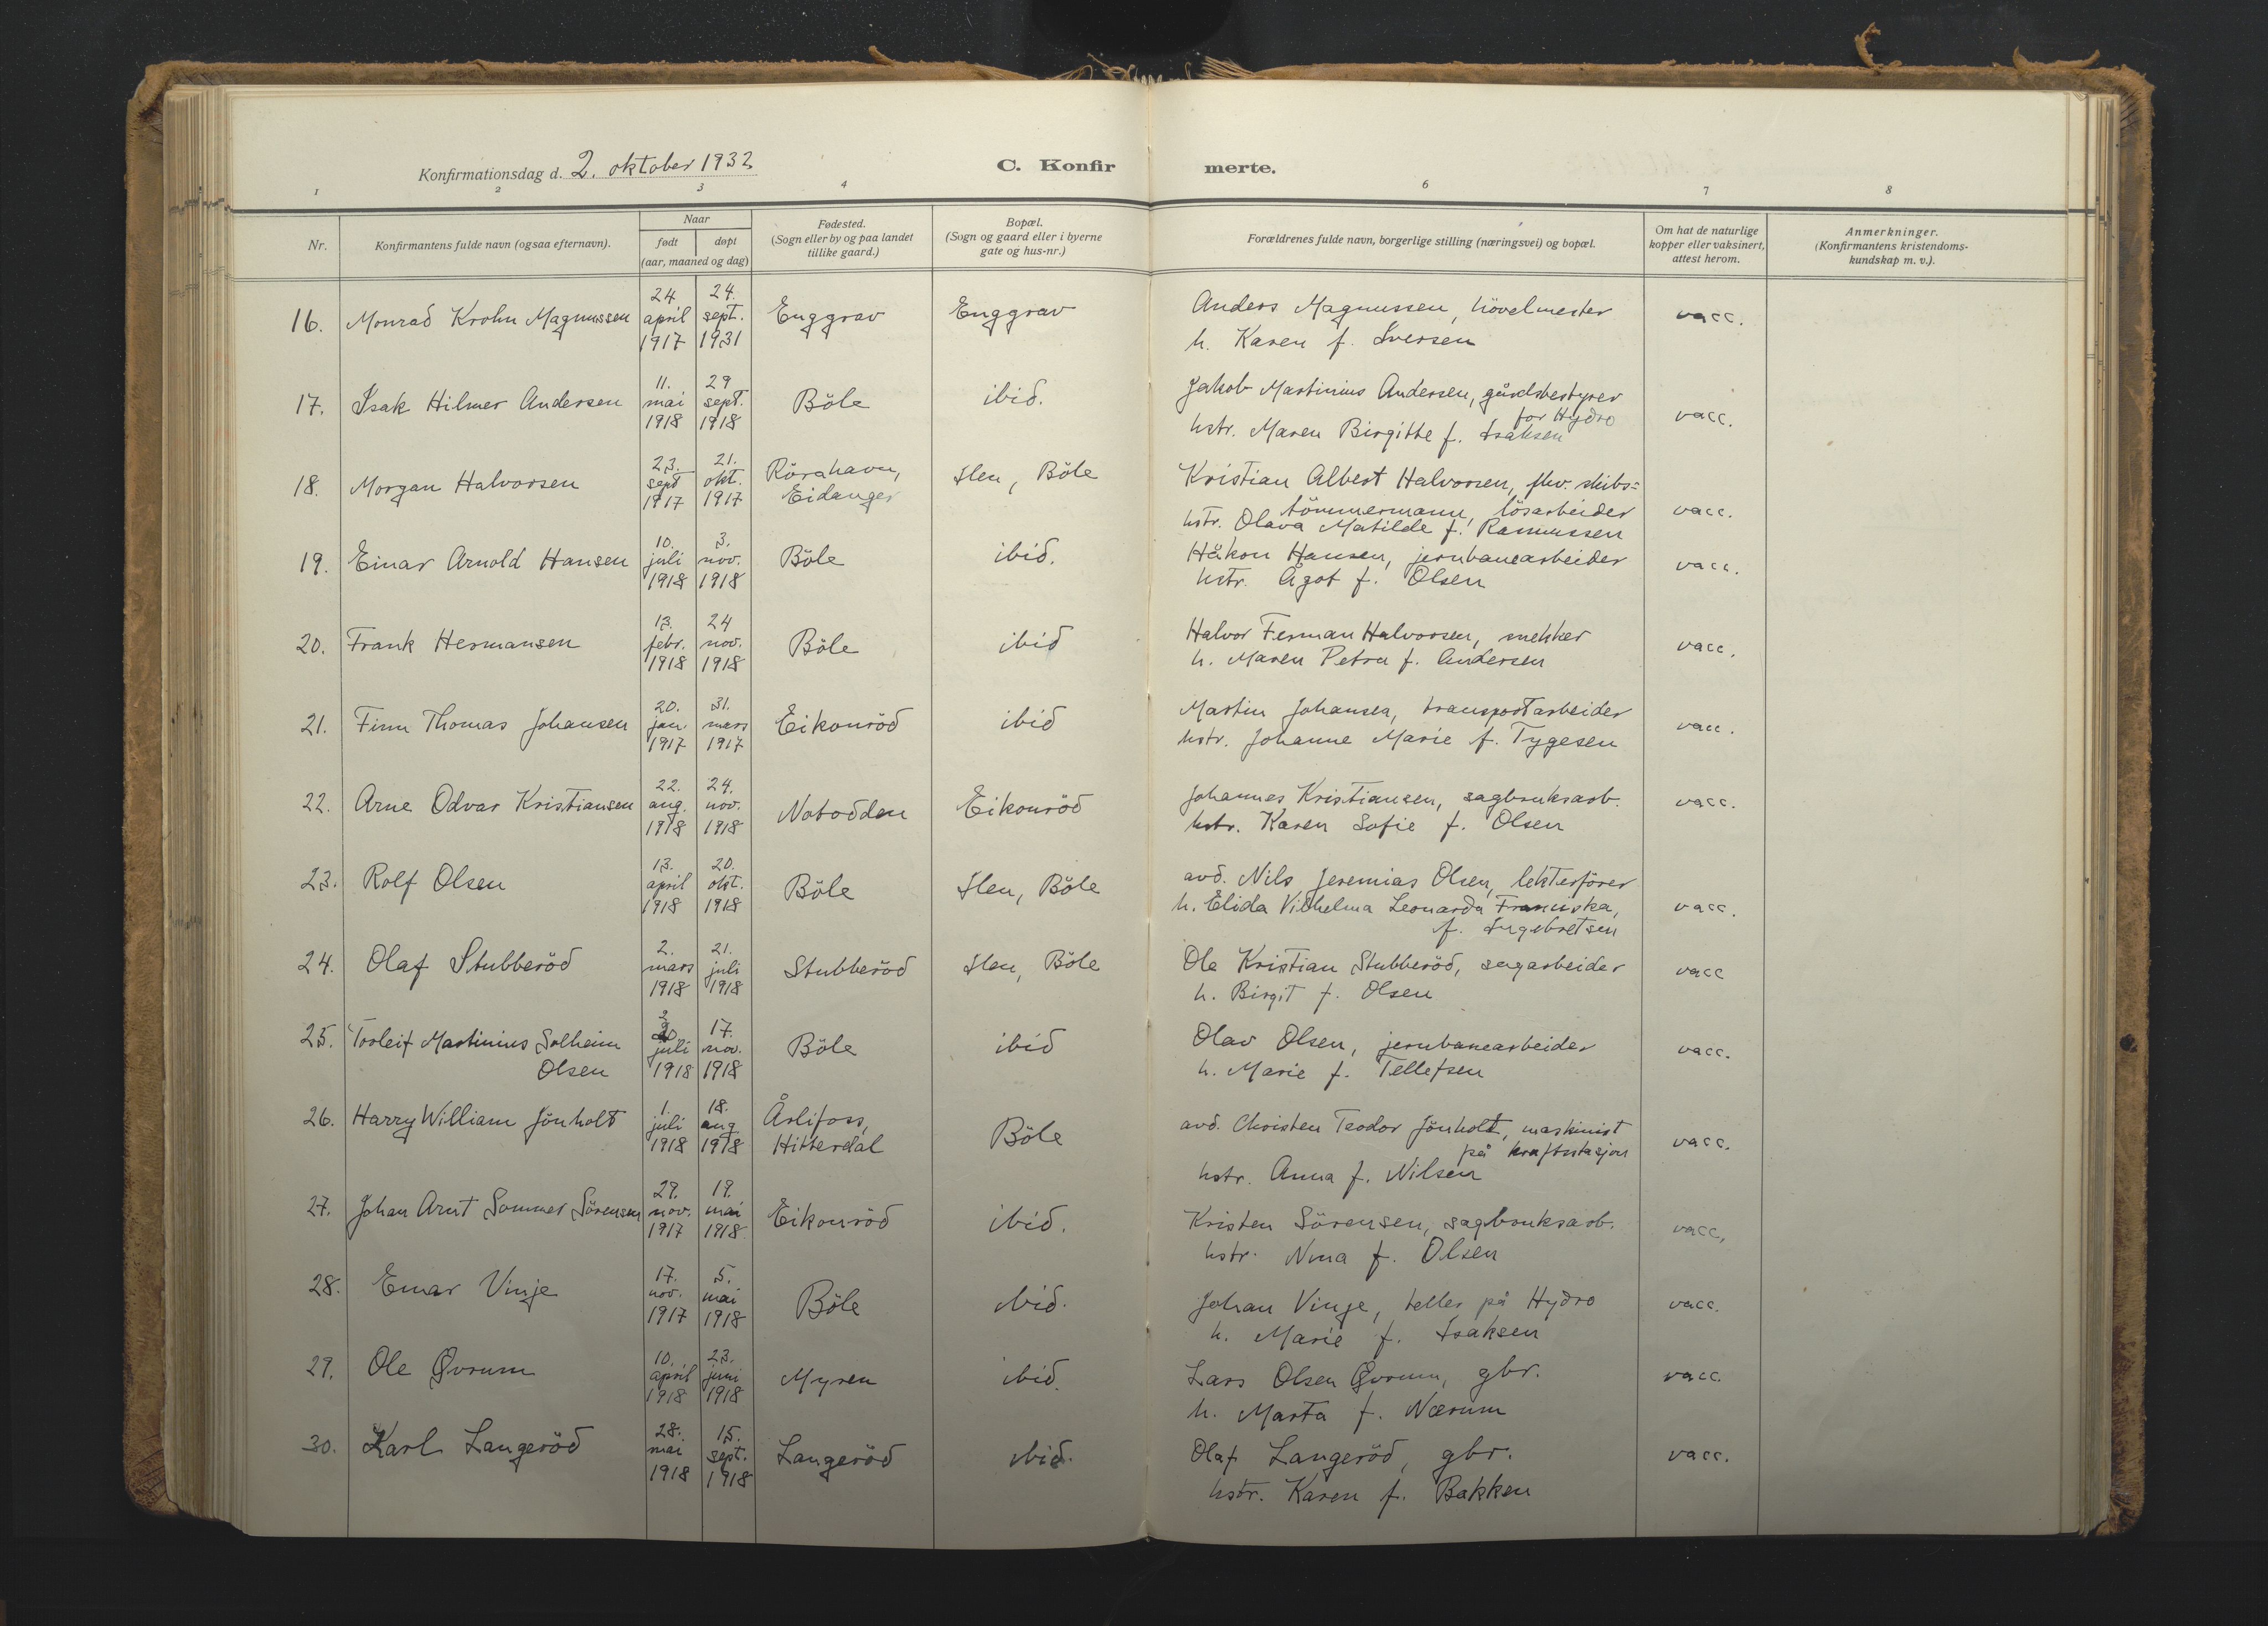 Konfirmationsdag d. 2. oktober 1932
C. Konfirmerte.
1 2 3 4 6 7 8
Nr.
Konfirmantens fulde navn (ogsaa efternavn).
Naar
født døpt
(aar, maaned og dag)
Fødested.
(Sogn eller by og paa landet
tillike gaard.)
Bopæl.
(Sogn og gaard eller i byerne
gate og hus-nr.)
Forældrenes fulde navn, borgerlige stilling (næringsvei) og bopæl.
Om hat de naturlige
kopper eller vaksinert,
attest herom.
Anmerkninger.
(Konfirmantens kristendoms-
kundskap m. v.).
24 24.
16. Monrad Krohn Magnussen april sept. Enggrav Enggrav Anders Magnussen, hövelmester vacc.
1917 1931 h. Karen f. Iversen
11. 29
17. Isak Hilmer Andersen mai sept. Böle ibid. Jakob Martinius Andersen, gårdsbestyrer
for Hydro vacc.
1918 1918 hstr. Maren Birgitte f. Isaksen
23. 21.
18. Morgan Halvorsen sept okt. Rörahavn, Ilen, Böle Kristian Albert Halvorsen, fhv. skibs=
1917 1917 Eidanger tömmermann, lösarbeider vacc.
hstr. Olava Matilde f. Rasmussen
10. 3.
19. Einar Arnold Hansen juli nov. Böle ibid. Håkon Hansen, jernbanearbeider vacc.
1918 1918 hstr. Agot f. Olsen
13. 24
20. Frank Hermansen febr. nov. Böle ibid Halvor Ferman Halvorsen, snekker vacc.
1918 1918 h. Maren Petra f. Andersen
20. 31.
21. Finn Thomas Johansen jan. mars Eikonröd ibid Martin Johansen, transportarbeider vacc.
1917 1917 hstr. Johanne Marie f. Tygesen
22. 24.
22. Arne Odvar Kristiansen aug. nov. Notodden Eikonröd Johannes Kristiansen, sagbruksarb. vacc.
1918 1918 hstr. Karen Sofie f. Olsen
13. 20.
23. Rolf Olsen april okt. Böle Ilen, Böle avd. Nils Jeremias Olsen, lekterförer
1918 1918 h. Elida Vilhelma Leonarda Franciska, vacc.
f. Ingebretsen
2. 21.
24. Olaf Stubberöd mars juli Stubberöd Ilen, Böle Ole Kristian Stubberöd, sagarbeider vacc
1918 1918 h. Birgit f. Olsen
17.
25. Torleif Martinius Solheim juli nov. Böle ibid Olav Olsen, jernbanearbeider vacc.
Olsen 1918 1918 h. Marie f. Tellefsen
1. 18.
26. Harry William Jönholt juli aug Årlifoss, Böle avd. Christen Teodor Jönholt, maskinist
1918 1918 Hitterdal på kraftstasjon vacc.
hstr. Anna f. Nilsen
29. 19.
27. Johan Arnt Sommer Sörensen nov. mai Eikonröd ibid. Kristen Sörensen, sagbruksarb. vacc,
1917 1918 hstr. Nina f. Olsen
17. 5.
28. Einar Vinje nov. mai Böle ibid. Johan Vinje, teller på Hydro vacc.
1917 1918 h. Marie f. Isaksen
10. 23.
29. Ole Øvrum april juni Myren ibid. Lars Olsen Øvrum, gbr. vacc.
1918 1918 h. Marta f. Nærum
28. 15.
30. Karl Langeröd mai sept. Langeröd ibid. Olaf Langeröd, gbr. vacc.
1918 1918 hstr. Karen f. Bakken